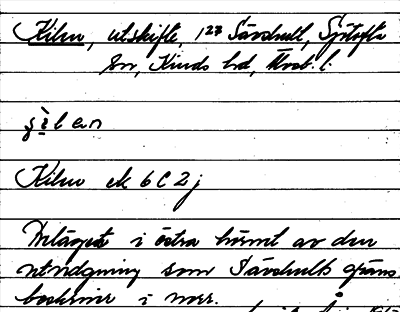 Kilen, utskifte, 1²³ Sävshult, Sjötofta
sn, Kinds hd, Älvsb. l.
Kilen ek 6 C 2 j
Beläget i östra hörnet av den
utvidgning som Sävshults gräns
beskriver i norr.